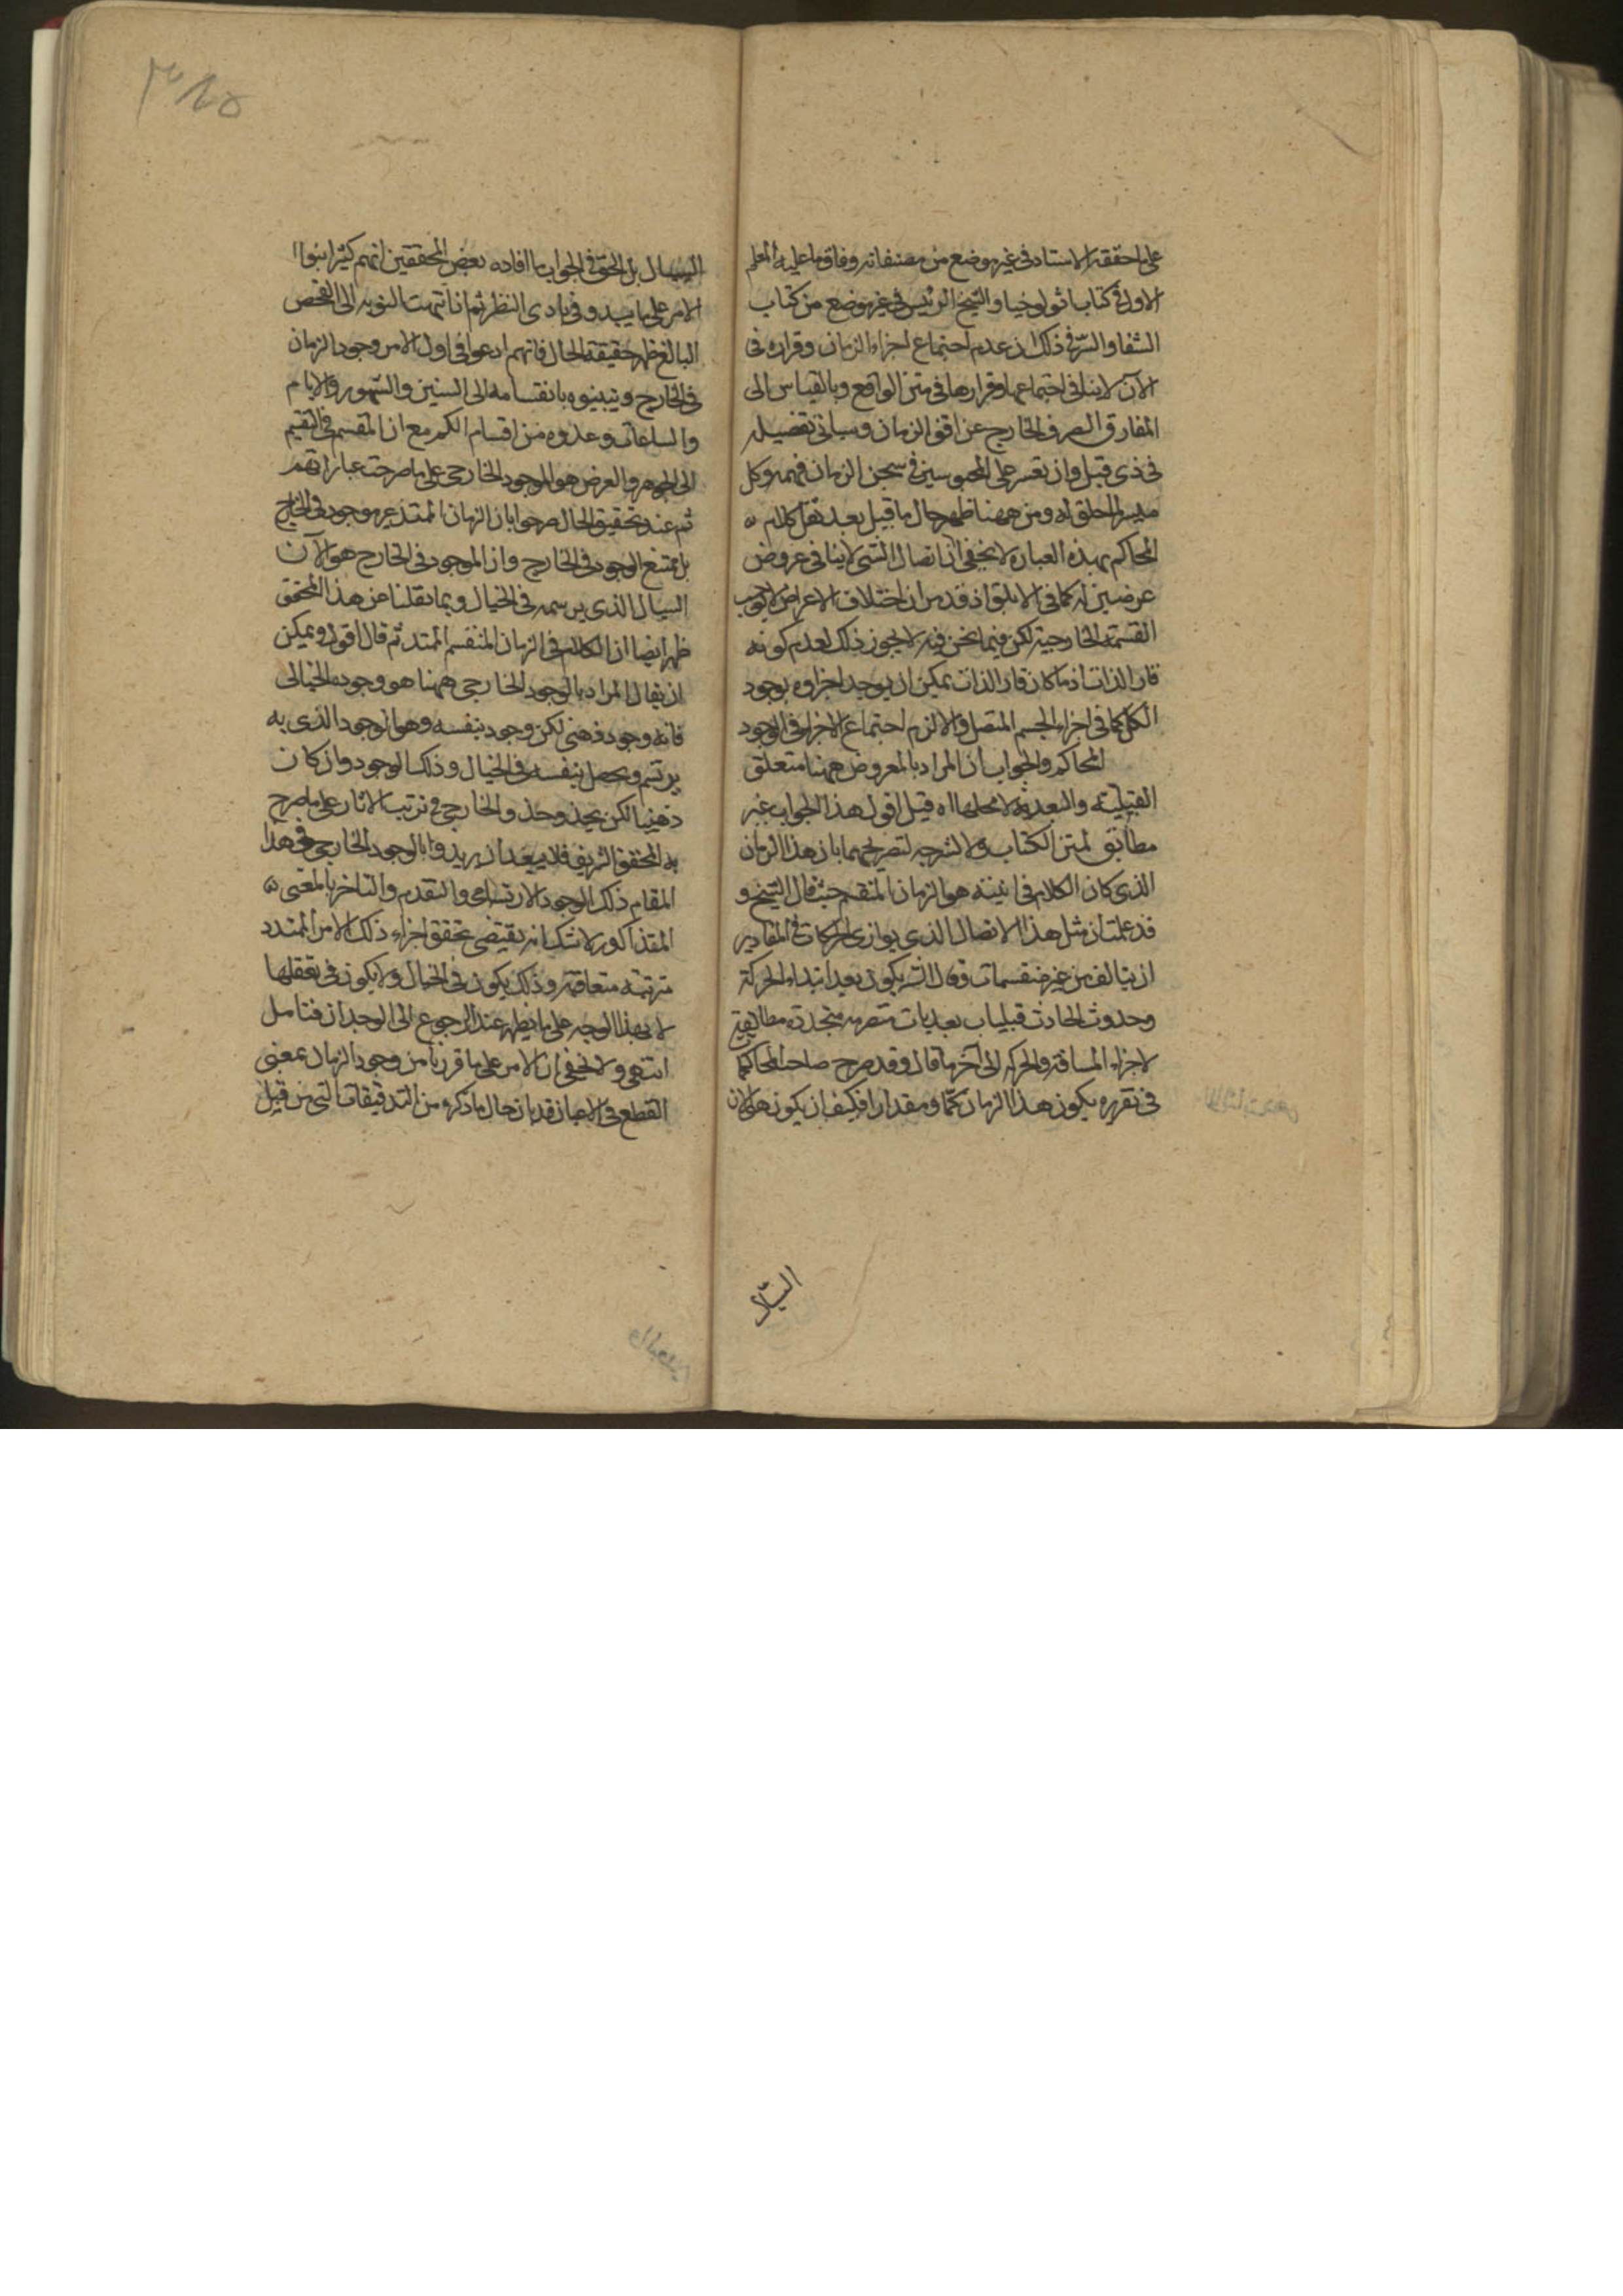 على ما حققه الاستاد فى غير موضع من مصنفاته وفاقا لما عليه المعلم
الاول فى كتاب اثولوخيا والشيخ الرئيس فى غير موضع من كتاب
الشفا والسرّ فى ذلك ان عدم اجتماع اجزاء الزمان وقراره فى
الآن لا ينافى اجتماعها وقرارها فى متن الواقع وبالقياس الى
المفارق الصرف الخارج عن افق الزمان وسياتى تفصيله
فى ذى قبل وان تعسر على المحبوسين فى سجن الزمان فهمه وكل
ميسر لما خلق له ومن ههنا ظهر حال ما قيل بعد نقل كلام
المحاكم بهذه العبارة لا يخفى ان اتصال الشى لا ينافى عروض
عرضين له كما فى الابلق اذ قد مر ان اختلاف الاعراض لا يوجب
القسمة الخارجية لكن فيما نحن فيه لا يجوز ذلك لعدم كونه
قار الذات اذ ما كان قار الذات يمكن ان يوجد اجزاوه بوجود
الكل كما فى اجزاء الجسم المتصل والا لزم اجتماع الاجزاء فى الوجود
المحاكم والجواب ان المراد بالمعروض ههنا متعلق
القبلية والبعدية لا محلهما اه قيل اقول هذا الجواب غير
مطابق لمتن الكتاب ولا لشرحه لتصريحهما بان هذا الزمان
الذى كان الكلام فى انيته هو الزمان المنقسم حيث قال الشيخ و
قد علمت ان مثل هذا الاتصال الذى يوازى الحركات فى المقادير
ان يتالف من غير منقسمات وقال الش يكون بعد ابتداء الحركة
وحدوث الحادث قبليات بعديات متصرمة متجددة مطابقة
لاجزاء المسافة والحركة الى آخر ما قال وقد صرح صاحب المحاكما
فى تقريره بكون هذا الزمان كمّا ومقدارا فكيف ان يكون هو الان
السيّال
السيال بل الحق فى الجواب ما افاده بعض المحققين انهم كثيرا بنوا
الامر على ما يبدو فى بادى النظر ثم اذا انتهت النوبه الى الفحص
البالغ ظهر حقيقة الحال فانهم ادعوا فى اول الامر وجود الزمان
فى الخارج وتبينوه بانقسامه الى السنين والشهور والايام
والساعات وعدوه من اقسام الكم مع ان المقسم فى التقيم
الى الجوهر والعرض هو الموجود الخارجى على ما صرحت عباراتهم
ثم عند تحقيق الحال صرحوا بان الزمان الممتد غير موجود فى الخارج
بل ممتنع الوجود فى الخارج وان الموجود فى الخارج هو الآن
السيال الذى يرسمه فى الخيال وبما نقلنا عن هذا المحقق
ظهر ايضا ان الكلام فى الزمان المنقسم الممتد ثم قال اقول ويمكن
ان يقال المراد بالوجود الخارجى ههنا هو وجوده الخيالى
فانه وجود ذهنى لكن وجود بنفسه وهو الوجود الذى به
يرتسم ويحصل بنفسه فى الخيال وذلك الوجود وان كان
ذهنيا لكن يحذو حذو الخارجى فى ترتب الاثار على ما صرح
به المحقق الشريف فلا يبعد ان يريدوا بالوجود الخارجى فى هذا
المقام ذلك الوجود الارتسامى والتقدم والتاخر بالمعنى
المقذاكور لا شك انه يقتضى تحقق اجزاء ذلك الامر الممتدد
مرتبة متعاقبة وذلك يكون فى الخيال ولا يكون فى تعقلها
لا بهذا الوجه على ما يظهر عند الرجوع الى الوجدان فتامل
انتهى ولا يخفى ان الامر على ما قررنا من وجود الزمان بمعنى
القطع فى الاعيان قد بان حال ما ذكره من التدقيقات التى من قبيل